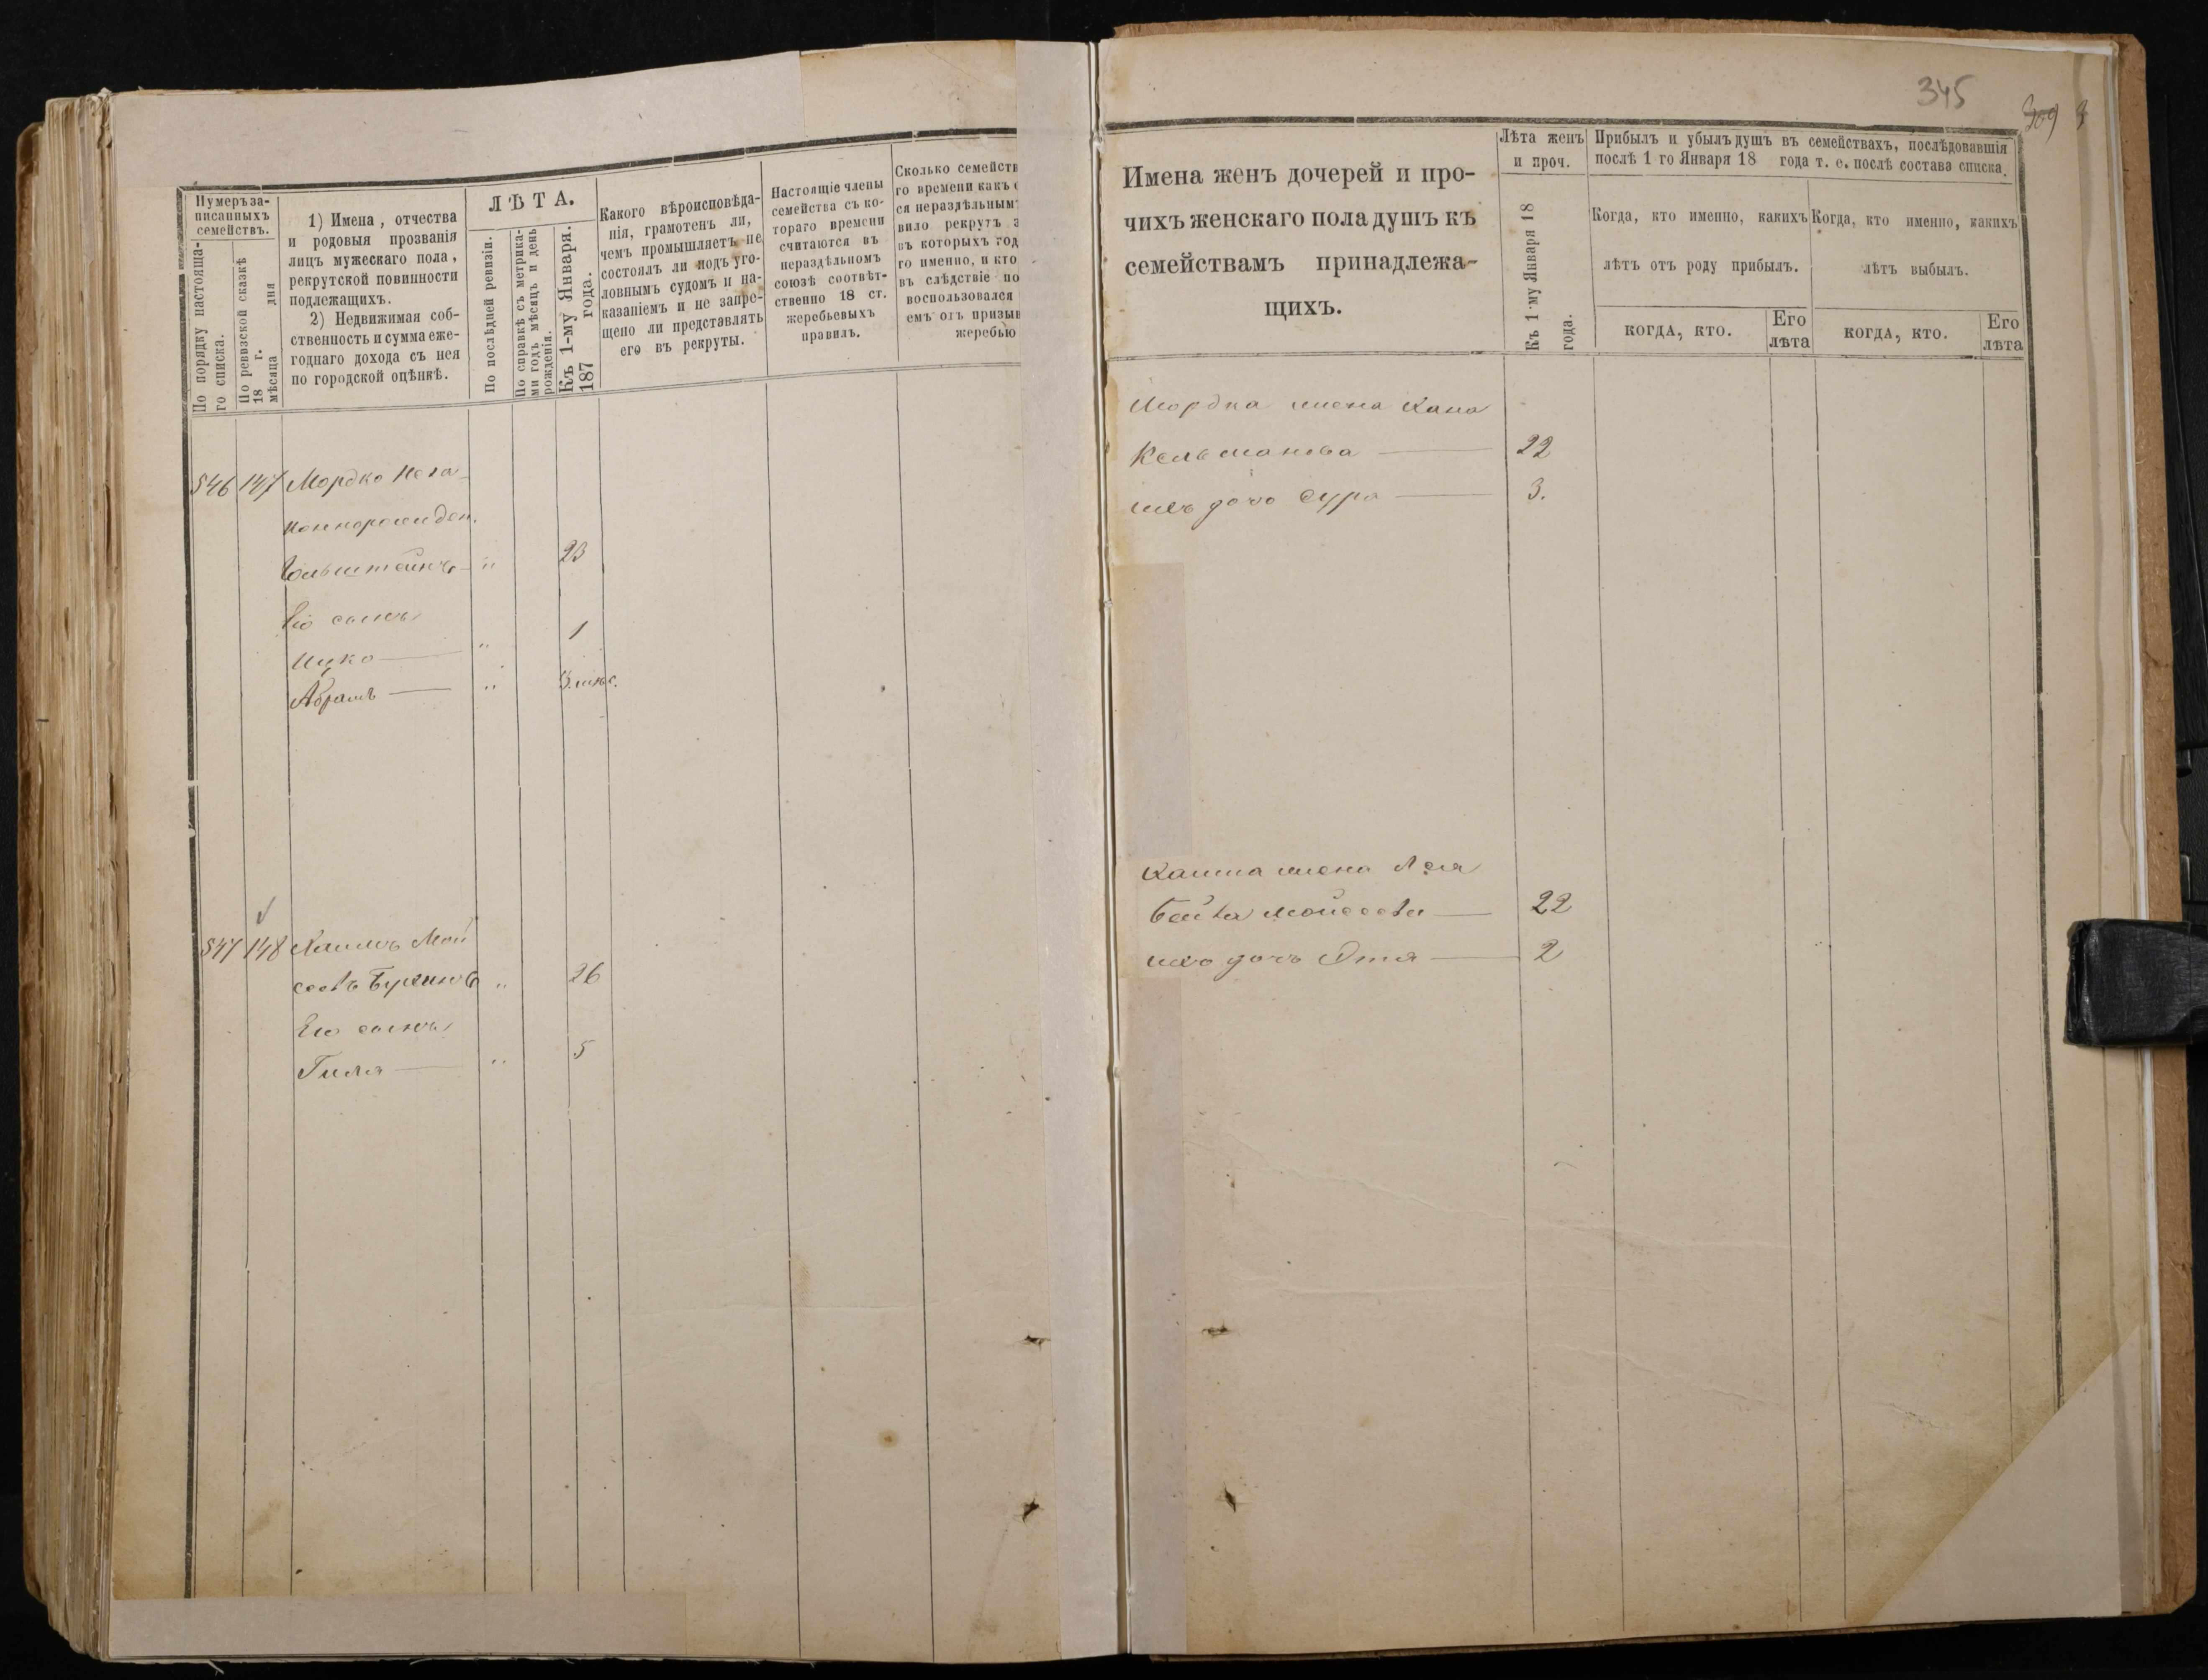 Нумеръ за-
писанныхъ
семействъ.
По порядку настояща-
го списка.
По ревизской сказкѣ
18 г.
мѣсяца дня
1) Имена, отчества
и родовыя прозванія
лицъ мужескаго пола,
рекрутской повинности
подлежащихъ.
2) Недвижимая соб-
ственность и сумма еже-
годнаго дохода съ нея
по городской оцѣнкѣ.
ЛѢТА.
По послѣдней ревизіи.
По справкѣ съ метрика-
ми годъ мѣсяцъ и день
рожденія.
Къ 1-му Января.
187 года.
Какого вѣроисповѣда-
нія, грамотенъ ли,
чемъ промышляетъ не
состоялъ ли подъ уго-
ловнымъ судомъ и на-
казаніемъ и не запре-
щено ли представлять
его въ рекруты.
Настоящіе члены
семейства съ ко-
тораго времени
считаются въ
нераздѣльномъ
союзѣ соотвѣт-
ственно 18 ст.
жеребьевыхъ
правилъ.
Сколько семейств
го времени какъ
ся нераздѣльным
вило рекрутъ
въ которыхъ год
го именно, и кто
въ слѣдствіе по
воспользовался
емъ отъ призыв
жеребью
546 147 Мордко
Гольштейнъ " 23
Его сынъ
Ицко " 1
Абрамъ "
547 148 Хаимъ Мой
сеевъ " 26
Его сынъ
Гиля " 5
345
309
Имена женъ дочерей и про-
чихъ женскаго пола душъ къ
семействамъ принадлежа-
щихъ.
Лѣта женъ
и проч.
Къ 1-му Января 18
года.
Прибылъ и убылъ душъ въ семействахъ, послѣдовавшія
послѣ 1 го Января 18 года т. е. послѣ состава списка.
Когда, кто именно, какихъ
лѣтъ отъ роду прибылъ.
Когда, кто именно, какихъ
лѣтъ выбылъ.
когда, кто.
Его
лѣта
когда, кто.
Его
лѣта
Мордка жена Хана
Кельманова 22
ихъ дочь Сура 3.
Хаима жена Лея
Бейла Мойсеева 22
ихъ дочь Этя 2